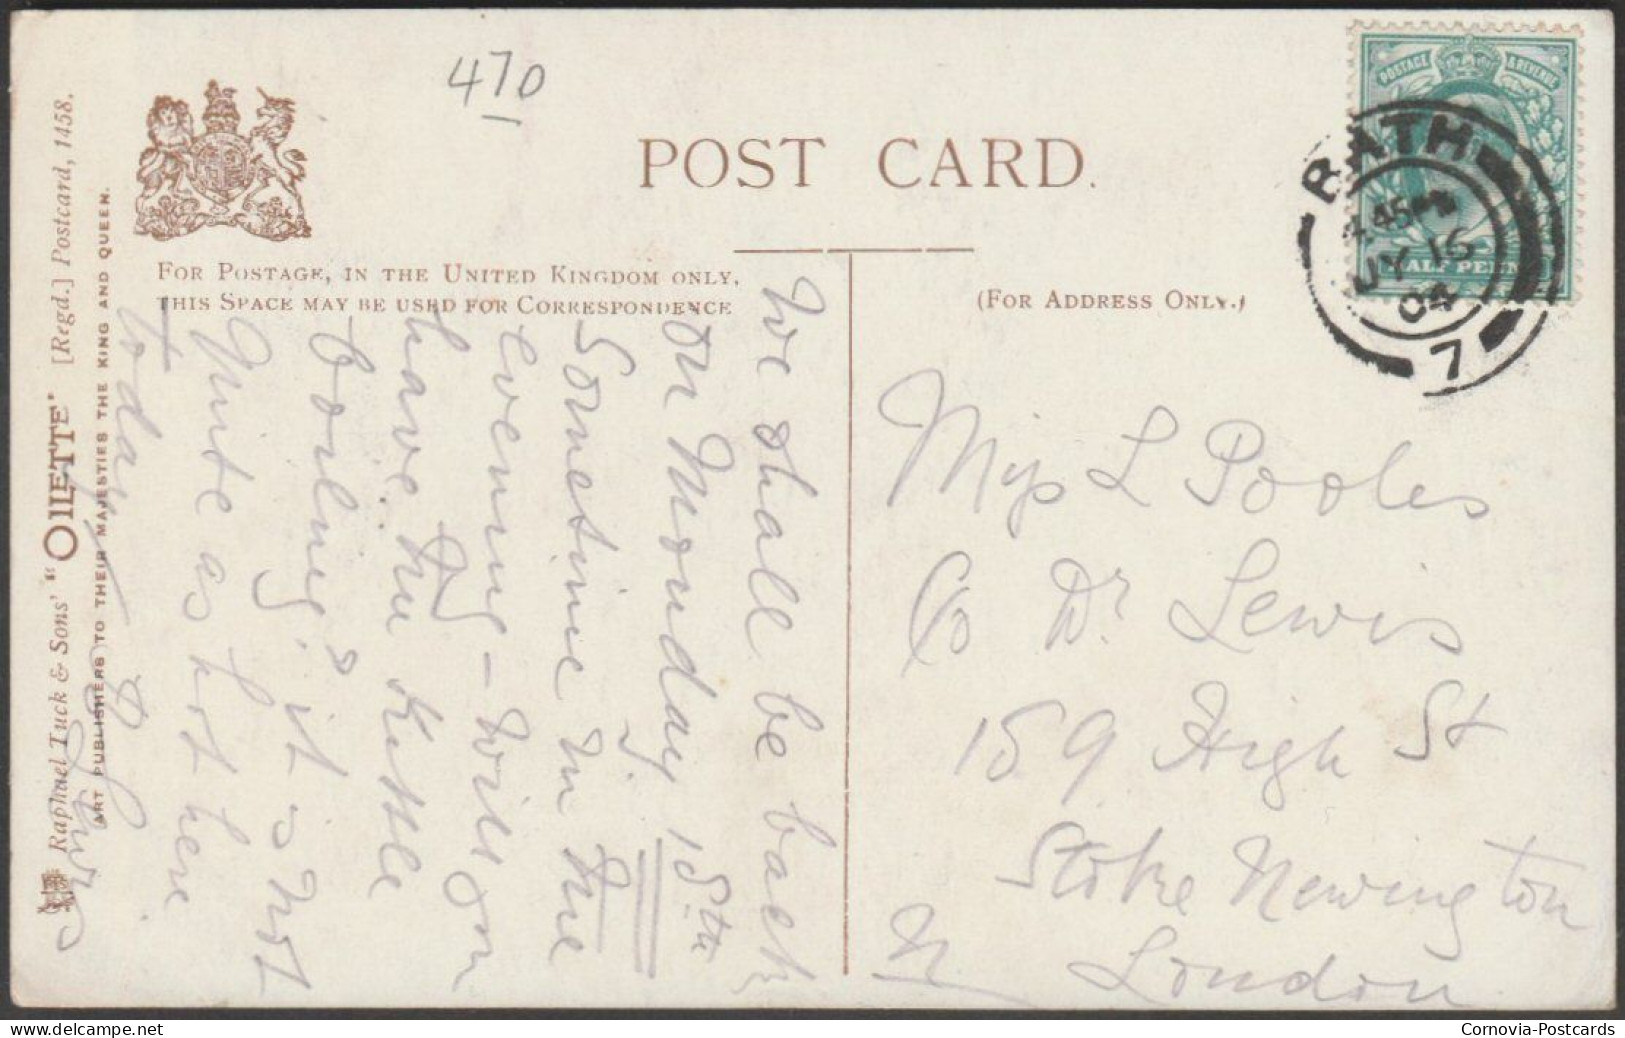 470
POST CARD.
FOR POSTAGE, IN THE UNITED KINGDOM ONLY,
THIS SPACE MAY BE USED FOR CORRESPONDENCE
(FOR ADDRESS ONLY.)
Raphael Tuck & Sons' "OILETTE" [Regd.] Postcard, 1458.
ART PUBLISHERS TO THEIR MAJESTIES THE KING AND QUEEN.
POSTAGE & REVENUE
HALF PENNY
BATH
JY 15
04
7
We shall be back
on Monday 18th
Sometime in the
evening - will on
have the Kettle
boiling? it is not
quite as hot here
today
Miss L Pooles
C/o Dr Lewis
159 High St
Stoke Newington
London
N
Cornovia-Postcards